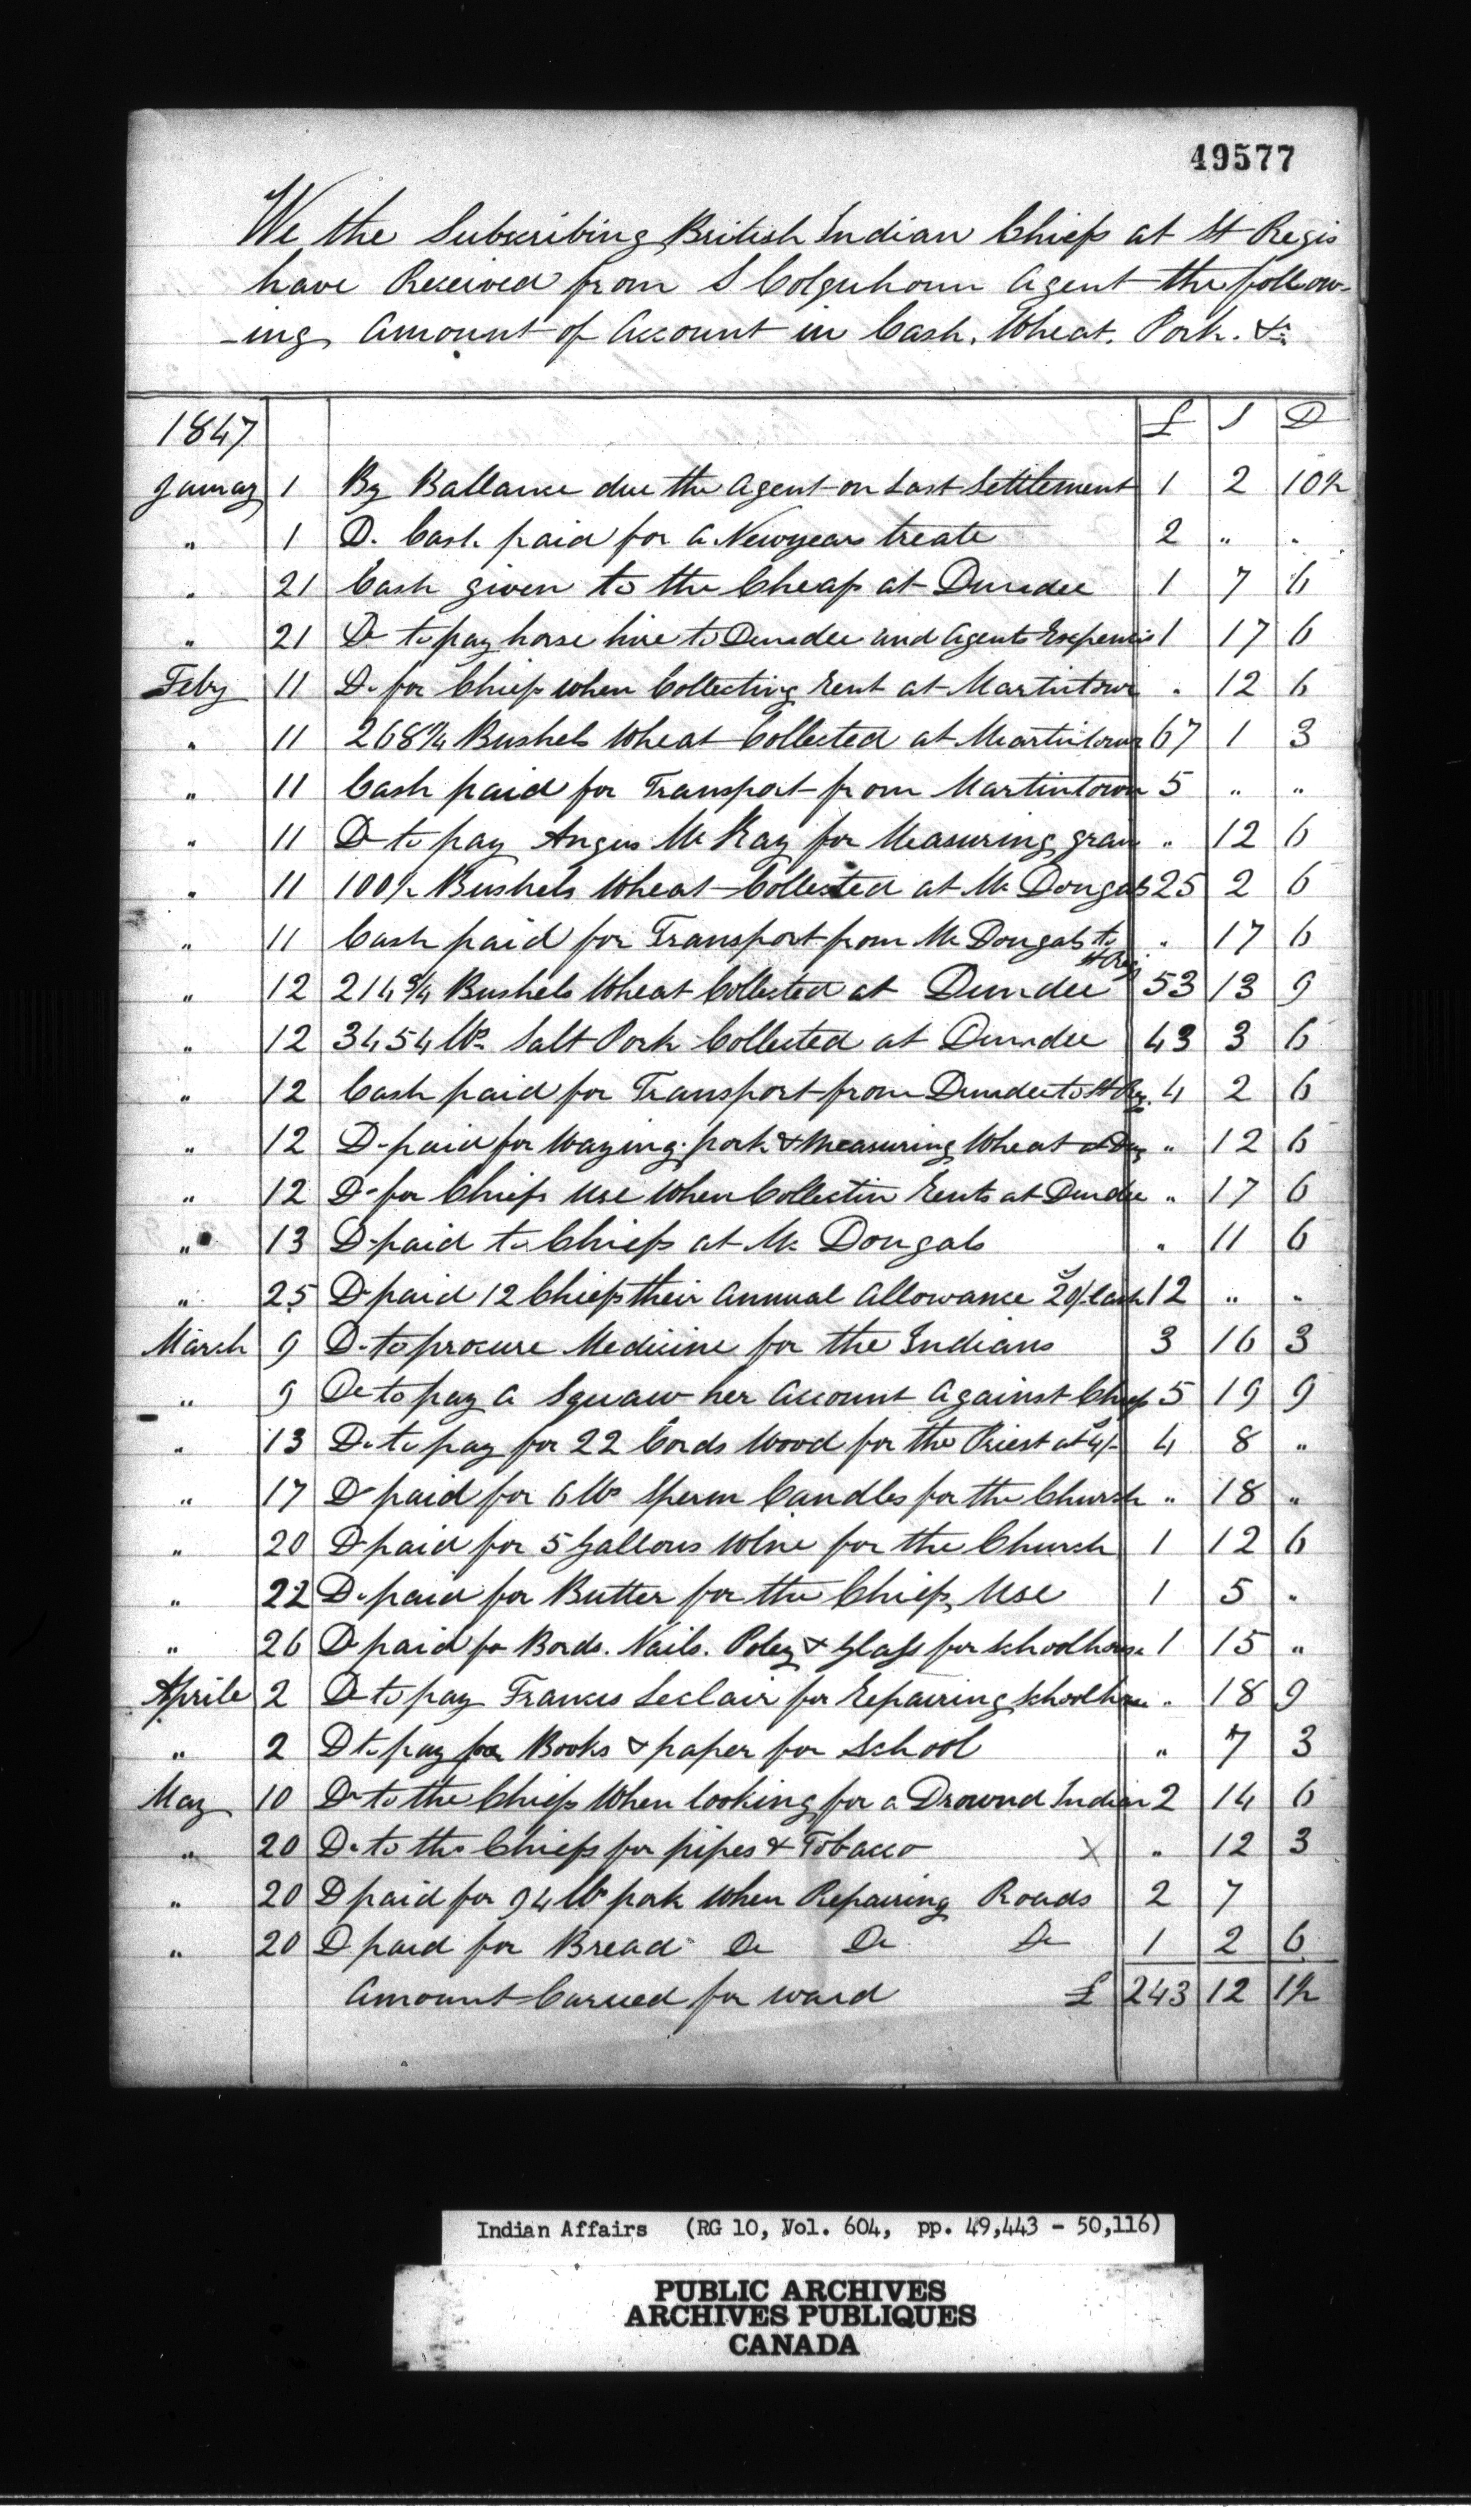 49577
We the Subscribing British Indian Chiefs at St Regis
have Received from S Colquhoun Agent the follow-
-ing Amount of Account in Cash, Wheat, Pork. &c
1847 £ S D
January 1 By Ballance due the Agent on Last Settlement 1 2 10½
" 1 Do. Cash paid for a Newyears treate 2 " "
" 21 Cash given to the Cheafs at Dundee 1 7 6
" 21 Do to pay horse hire to Dundee and Agents Expencis 1 17 6
Feby 11 Do for Chiefs when Collecting Rent at Martintown " 12 6
" 11 268¼ Bushels Wheat Collected at Martintown 67 1 3
" 11 Cash paid for Transport from Martintown 5 " "
" 11 Do to pay Angus McKay for Measuring grain " 12 6
" 11 100½ Bushels Wheat Collected at McDougals 25 2 6
" 11 Cash paid for Transport from McDougals to St Regis " 17 6
" 12 214¾ Bushels Wheat Collected at Dundee 53 13 9
" 12 3454 lbs Salt Pork Collected at Dundee 43 3 6
" 12 Cash paid for Transport from Dundee to St Reg. 4 2 6
" 12 Do paid for Waying pork & Measuring Wheat " 12 6
" 12 Do for Chiefs Use When Collectin Rents at Dundee " 17 6
" 13 Do paid to Chiefs at McDougals " 11 6
" 25 Do paid 12 Chiefs their Annual Allowance 20/ Each 12 " "
March 9 Do to procure Medicine for the Indians 3 16 3
" 9 Do to pay a Squaw her Account Against Chiefs 5 19 9
" 13 Do to pay for 22 Cords Wood for the Priest at 4/- 4 8 "
" 17 Do paid for 6 lbs Sperm Candles for the Church " 18 "
" 20 Do paid for 5 Gallons Wine for the Church 1 12 6
" 22 Do paid for Butter for the Chiefs Use 1 5 "
" 26 Do paid for Bords. Nails. Potey & Glass for Schoolhouse 1 15 "
Aprile 2 Do to pay Francis Leclair for Repairing Schoolhouse " 18 9
" 2 Do to pay for Books & paper for School " 7 3
May 10 Do to the Chiefs When looking for a Drownd Indian 2 14 6
" 20 Do to the Chiefs for pipes & Tobacco X " 12 3
" 20 Do paid for 94 lbs pork When Repairing Roads 2 7
" 20 Do paid for Bread Do Do Do 1 2 6
Amount Carried for ward £ 243 12 1½
Indian Affairs (RG 10, Vol. 604, pp. 49,443 - 50,116)
PUBLIC ARCHIVES
ARCHIVES PUBLIQUES
CANADA